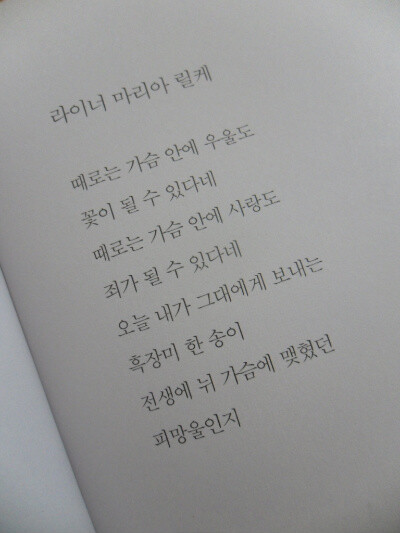 라이너 마리아 릴케
때로는 가슴 안에 우울도
꽃이 될 수 있다네
때로는 가슴 안에 사랑도
죄가 될 수 있다네
오늘 내가 그대에게 보내는
흑장미 한 송이
전생에 뉘 가슴에 맺혔던
피망울인지